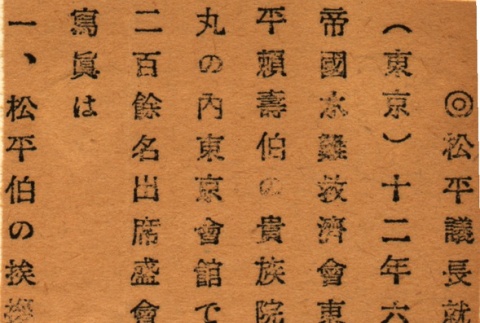 ◎松平議長就
（東京）十二年六
帝國水難救濟會東
平賴壽伯の貴族院
丸の內東京會館で
二百餘名出席盛會
寫眞は
一、松平伯の挨拶